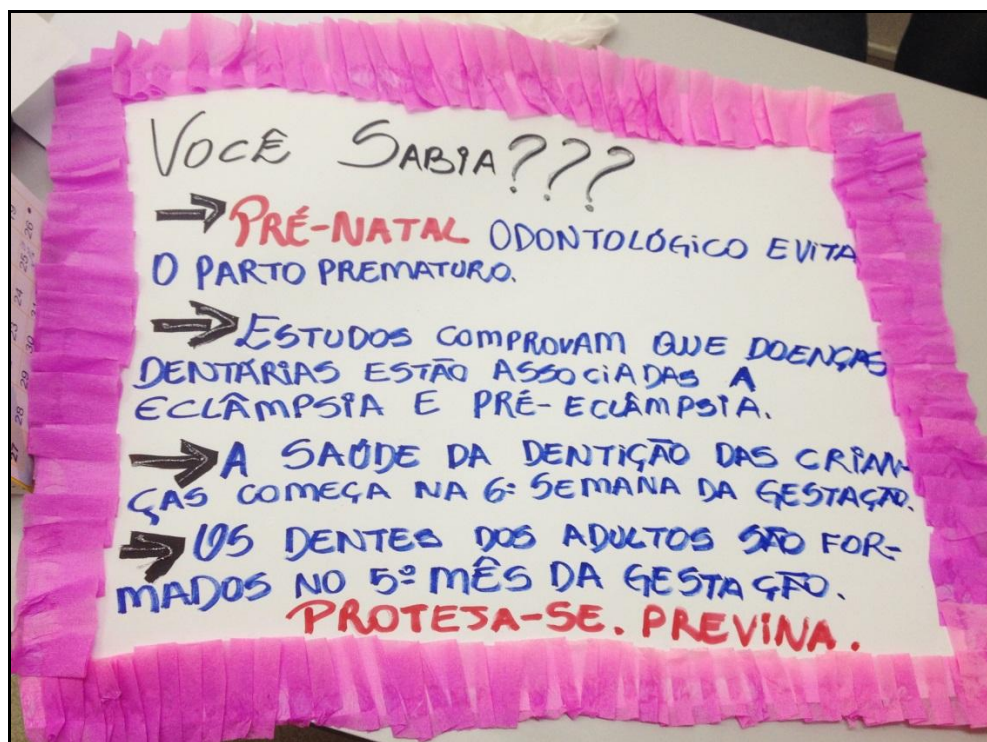 VOCÊ SABIA???
PRÉ-NATAL ODONTOLÓGICO EVITA
O PARTO PREMATURO.
ESTUDOS COMPROVAM QUE DOENÇAS
DENTÁRIAS ESTÃO ASSOCIADAS A
ECLÂMPSIA E PRÉ-ECLÂMPSIA.
A SAÚDE DA DENTIÇÃO DAS CRIAN-
ÇAS COMEÇA NA 6ª SEMANA DA GESTAÇÃO.
OS DENTES DOS ADULTOS SÃO FOR-
MADOS NO 5º MÊS DA GESTAÇÃO.
PROTEJA-SE. PREVINA.